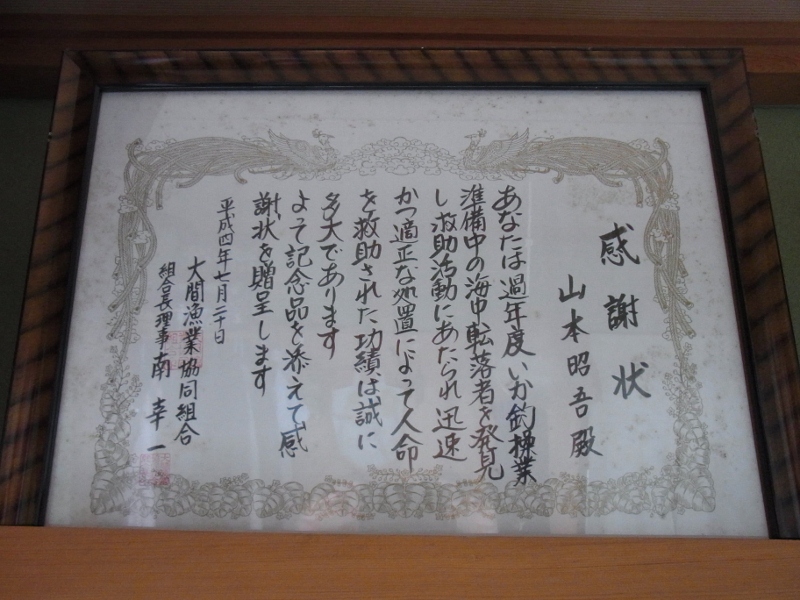 感謝状
山本昭吾殿
あなたは過年度いか釣操業
準備中の海中転落者を発見
し救助活動にあたられ迅速
かつ適正な処置によって人命
を救助された功績は誠に
多大であります
よって記念品を添えて感
謝状を贈呈します
平成四年七月二十日
大間漁業協同組合
組合長理事南幸一